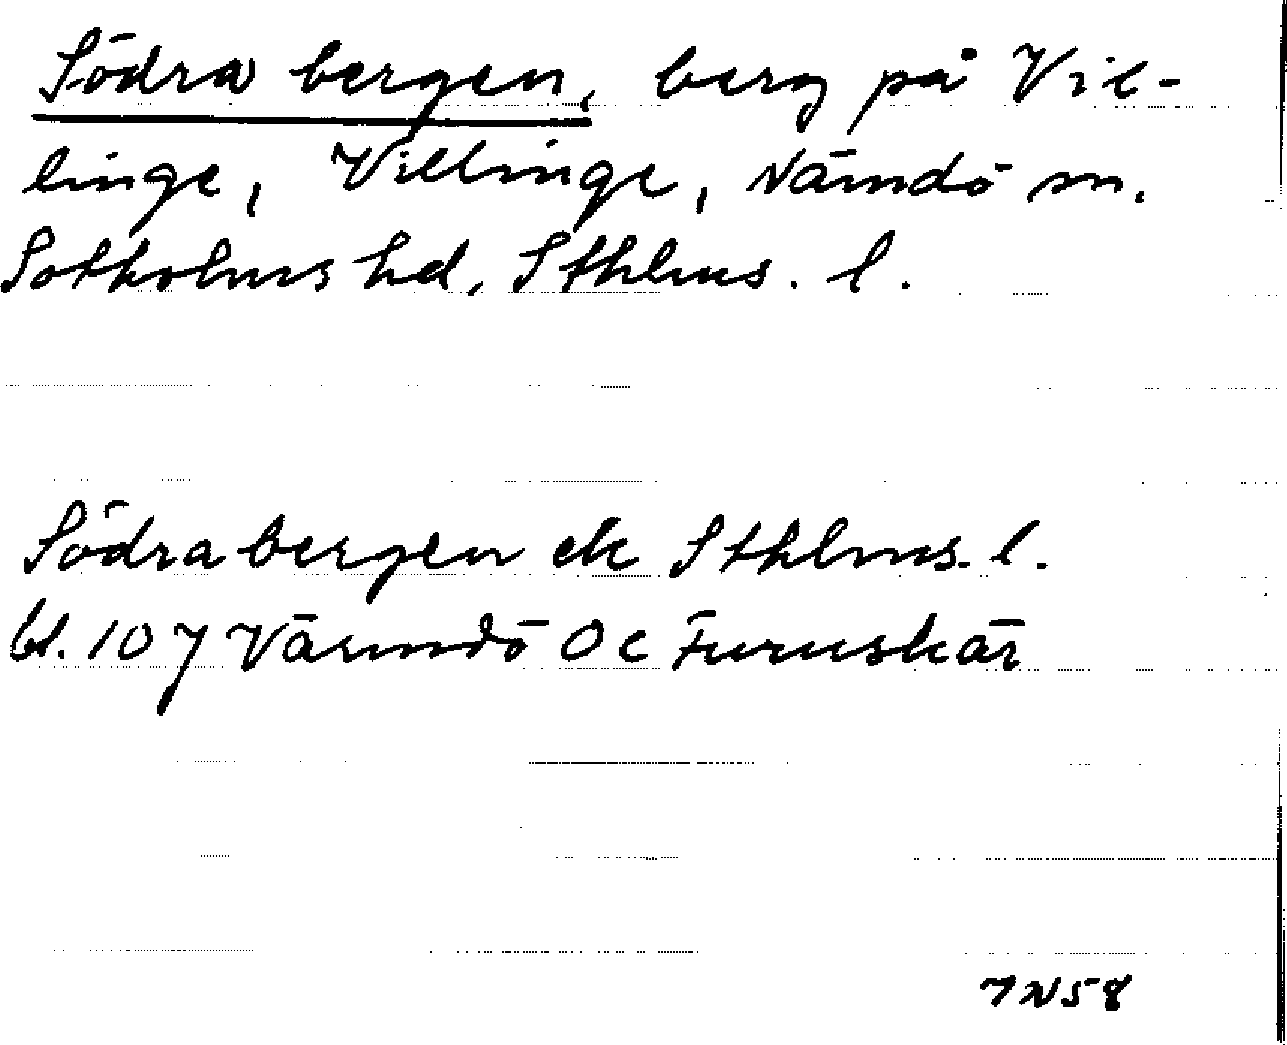 Södra bergen, berg på Vil-
linge, Villinge, Nämdö sn.
Sotholms hd, Sthlms. l.
Södra bergen ek Sthlms. l.
bl. 107 Värmdö Oc Furuskär
7N58